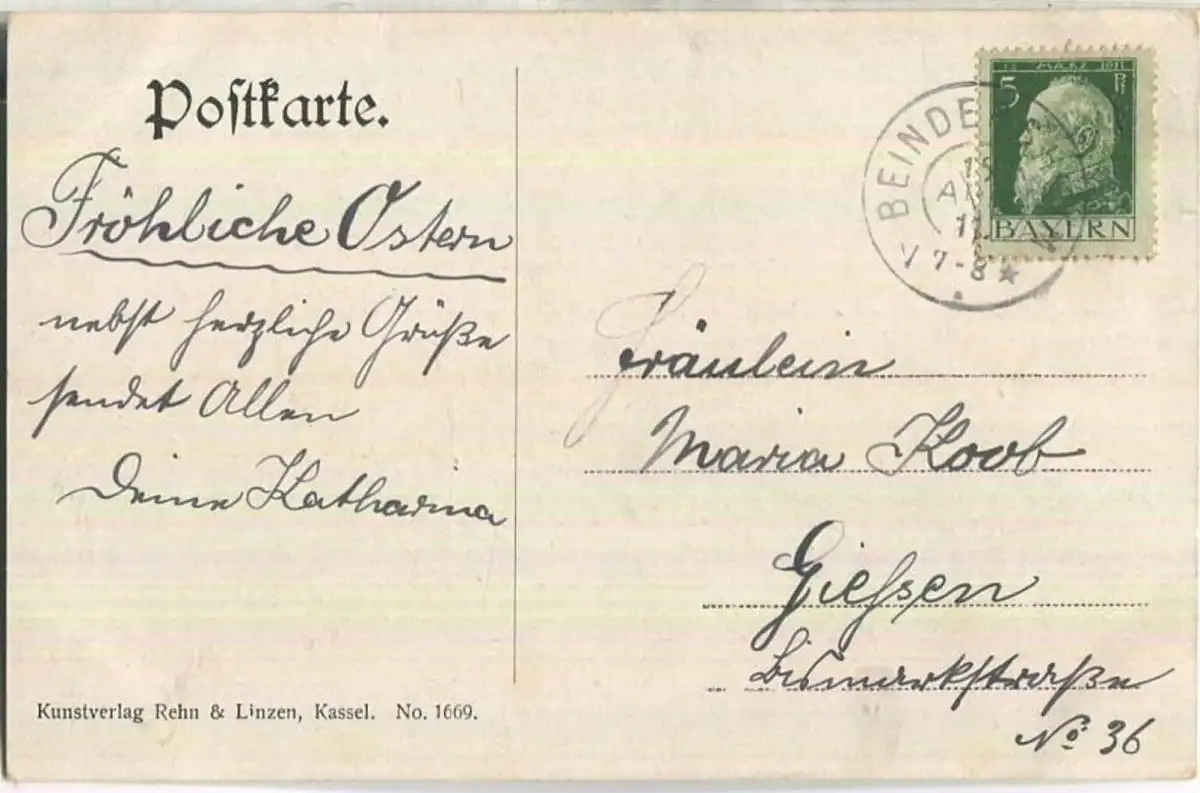 Postkarte.
Fröhliche Ostern
nebst herzliche Grüße
sendet Allen
Deine Katharina
Kunstverlag Rehn & Linzen, Kassel. No. 1669.
MÄRZ 1911
5
BAYERN
BEINDE
11
V 7-8
Fräulein
Maria Koob
Giessen
Bismarkstraße
No 36